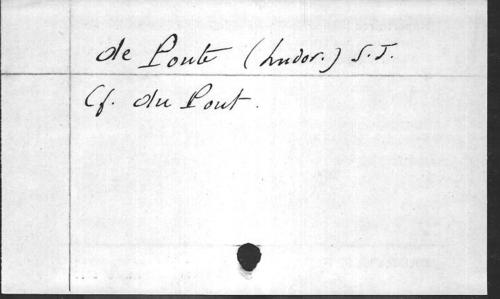 de Ponte (Ludov.) S.J.
Cf. du Pont.